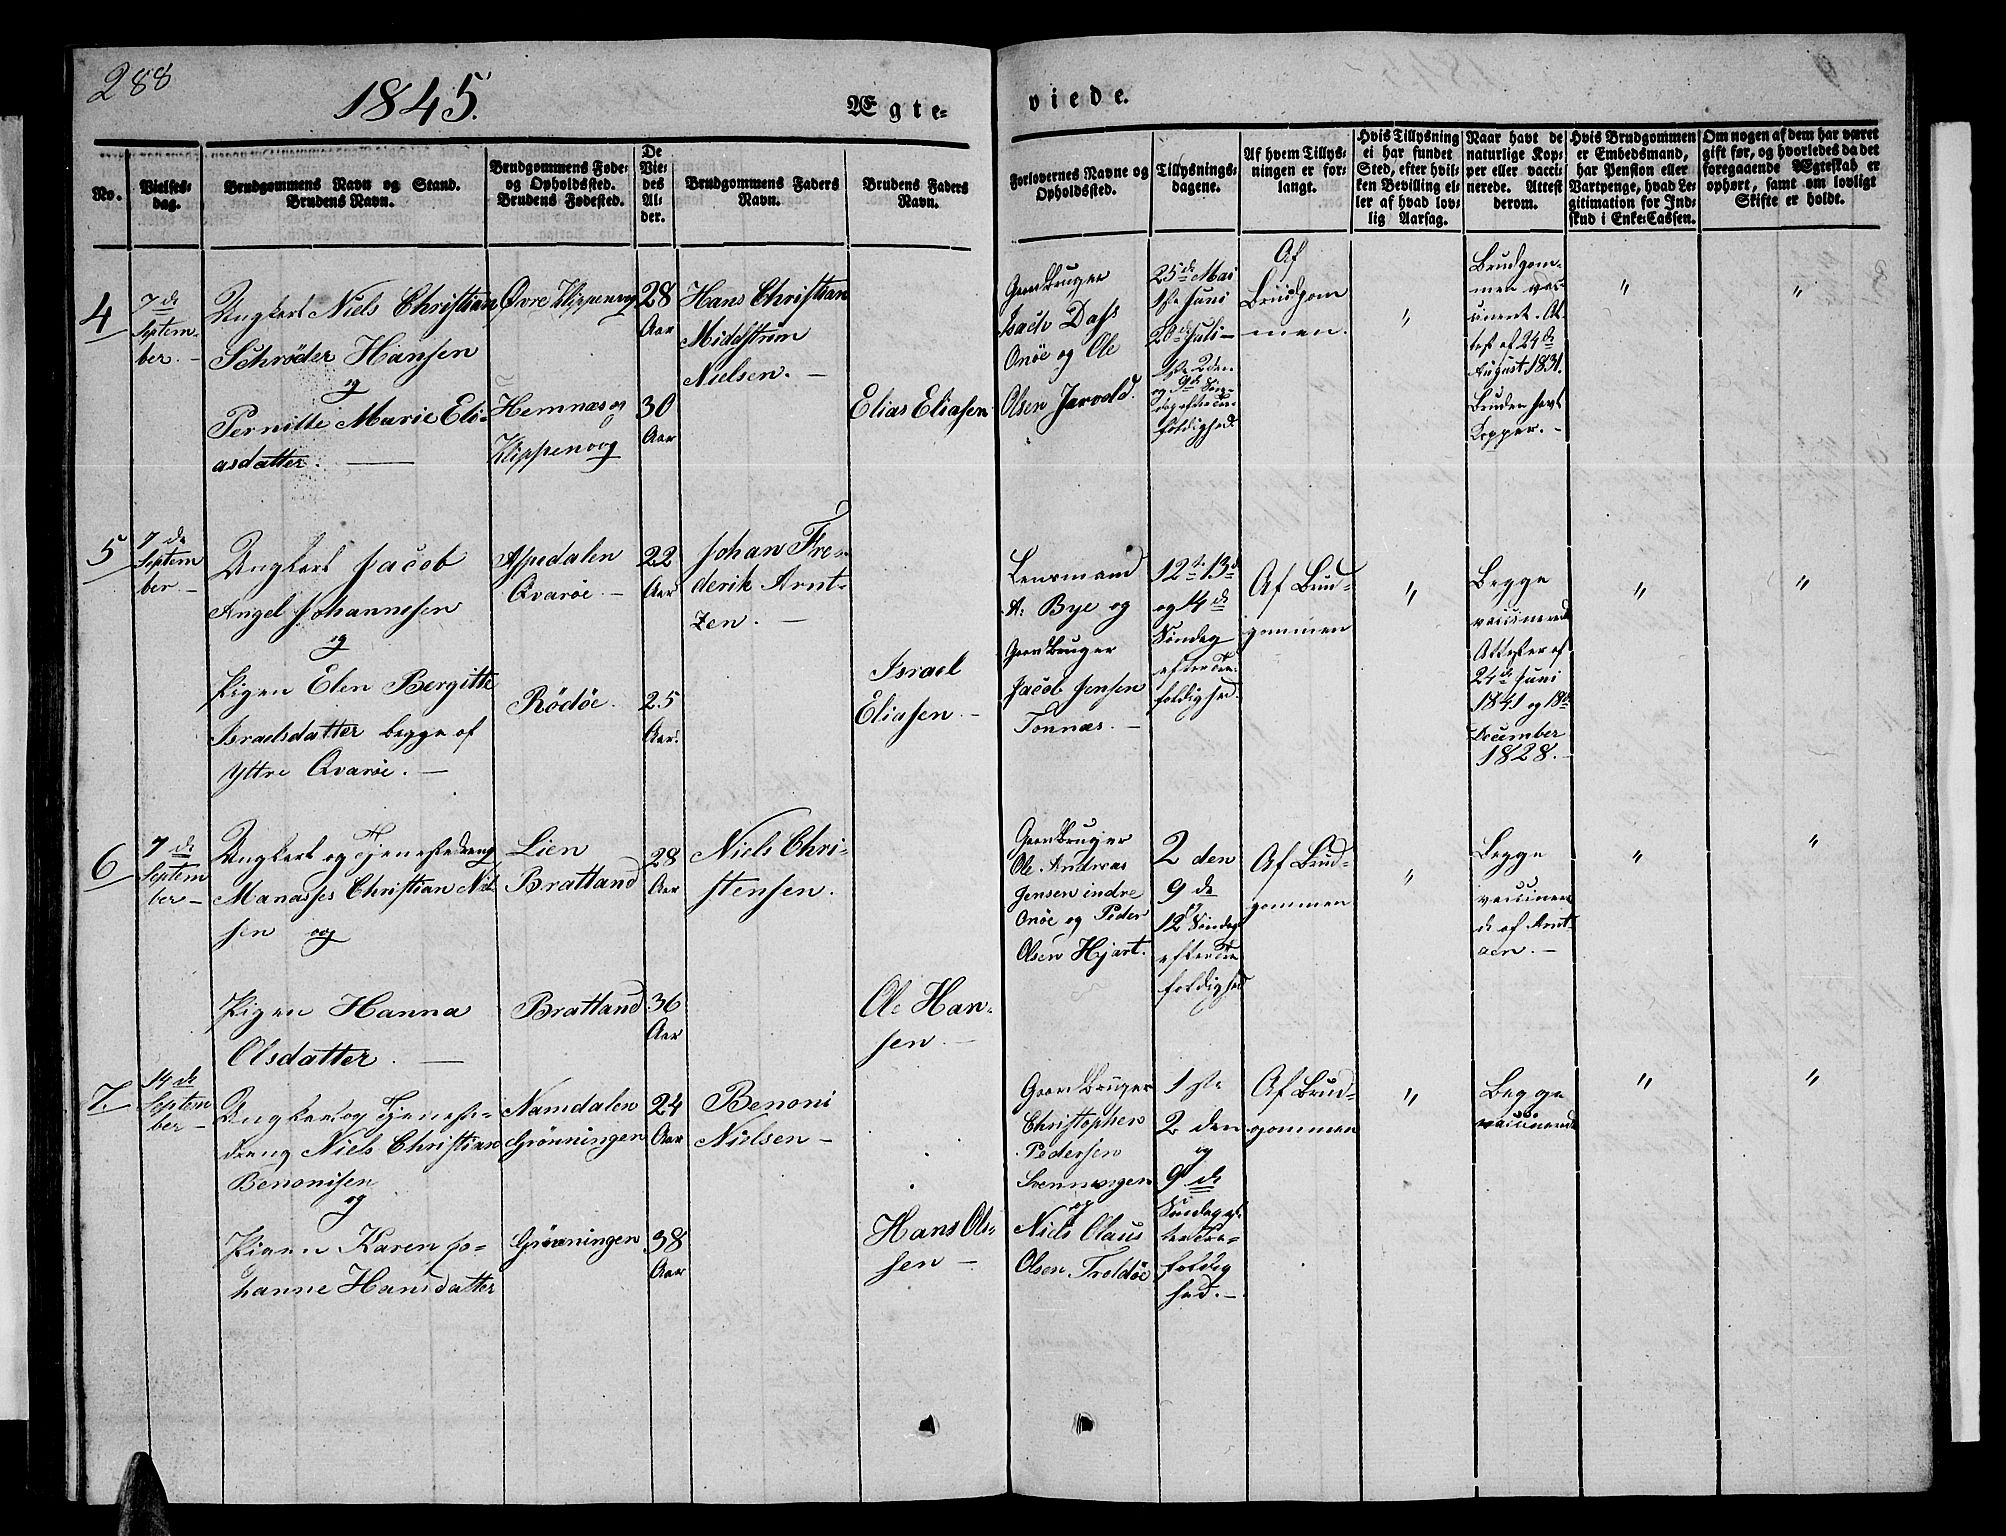 288
1845.
Ægte-
viede.
No.
Vielses-
dag.
Brudgommens Navn og Stand.
Brudens Navn.
Brudgommens Føde-
og Opholdssted.
Brudens Fødested.
De
Vie-
des
Al-
der.
Brudgommens Faders
Navn.
Brudens Faders
Navn.
Forlovernes Navne og
Opholdssted.
Tillysnings-
dagene.
Af hvem Tillys-
ningen er for-
langt.
Hvis Tillysning
ei har fundet
Sted, efter hvil-
ken Bevilling el-
ler af hvad lov-
lig Aarsag.
Naar havt de
naturlige Kop-
per eller vacci-
nerede. Attest
derom.
Hvis Brudgommen
er Embedsmand,
har Pension eller
Vartpenge, hvad Le-
gitimation for Ind-
skud i Enke-Cassen.
Om nogen af dem har været
gift før, og hvorledes da det
foregaaende Ægteskab er
ophørt, samt om lovligt
Skifte er holdt.
4
7de
Septem-
ber.
Ungkarl Niels Christian
Schrøder Hansen
og
Pernitte Marie Eli-
asdatter.
Øvre Klippenvog
Hemnæs og
Klippenvog
28
Aar
30
Aar
Hans Christian
Middstrøm
Nielsen.
Elias Eliasen
Gaardbruger
Isach Dass
Onøe og Ole
Olsen Jarvold.
25de Mai
1ste Juni
20de Juli
1ste 2den
og 9de Søn-
dag efter Tre-
foldighed.
Af
Brudgom
men.
"
Brudgom-
men vac-
cineret. At-
test af 24de
August 1831.
Bruden havt
Kopper.
"
"
5
7de
Septem
ber.
Ungkarl Jacob
Angel Johannesen
og
Pigen Elen Bergitte
Israelsdatter begge af
Yttre Qvarøe.
Aspedalen
Qvarøe.
Rødøe.
22
Aar
25
Aar.
Johan Fre-
derik Arnt-
zen.
Israel
Eliasen
Lensmand
A. Bye og
Gaardbruger
Jacob Jensen
Tonnæs.
12te 13de
og 14de
Søndag
efter Tre-
foldighed.
Af Brud-
gommen
"
Begge
vaccinerede
Attester af
24de Juni
1841 og 18de
December
1828.
"
"
6
7de
Septem
ber
Ungkarl og Tjenestedreng
Manasses Christian Niel
sen og
Pigen Hanna
Olsdatter.
Lien
Brattland
Brattland
28
Aar
36
Aar
Niels Chri-
stensen.
Ole Han-
sen.
Gaardbruger
Ole Andreas
Jensen indre
Onøe og Peder
Olsen Hjart.
2den
9de
12te Søndag
efter Tre
foldighed
Af Brud-
gommen
"
Begge
vaccinere
de af Arnt-
zen.
"
"
7.
14de
Septem
ber
Ungkarl og Tjeneste-
dreng Niels Christian
Benonisen
og
Pigen Karen Jo-
hanne Hansdatter
Namdalen
Grønningen
Grønningen
24
Aar
38
Aar
Benoni
Nielsen
Hans Ol-
sen
Gaardbruger
Christopher
Pedersen
Svenningen
og
Niels Olaus
Olsen Troldøe
1ste
2den
og
9de
Søndag ef-
ter Tre-
foldig
hed.
Af Brud-
gommen
"
Begge
vaccinerede
"
"